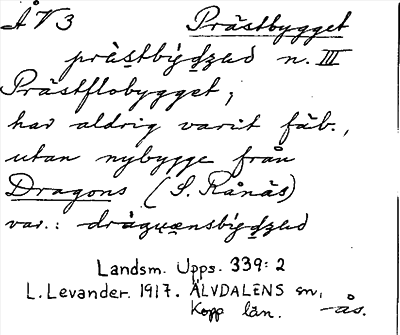 ÅV3 Prästbygget
präs̱tbýḏẕed n. III
Prästflobygget;
har aldrig varit fäb.,
utan nybygge från
Dragons (S. Rånäs)
var.: dråguænsbýḏẕed
Landsm. Upps. 339:2
L. Levander. 1917. ÄLVDALENS sn,
Kopp län. -ås.